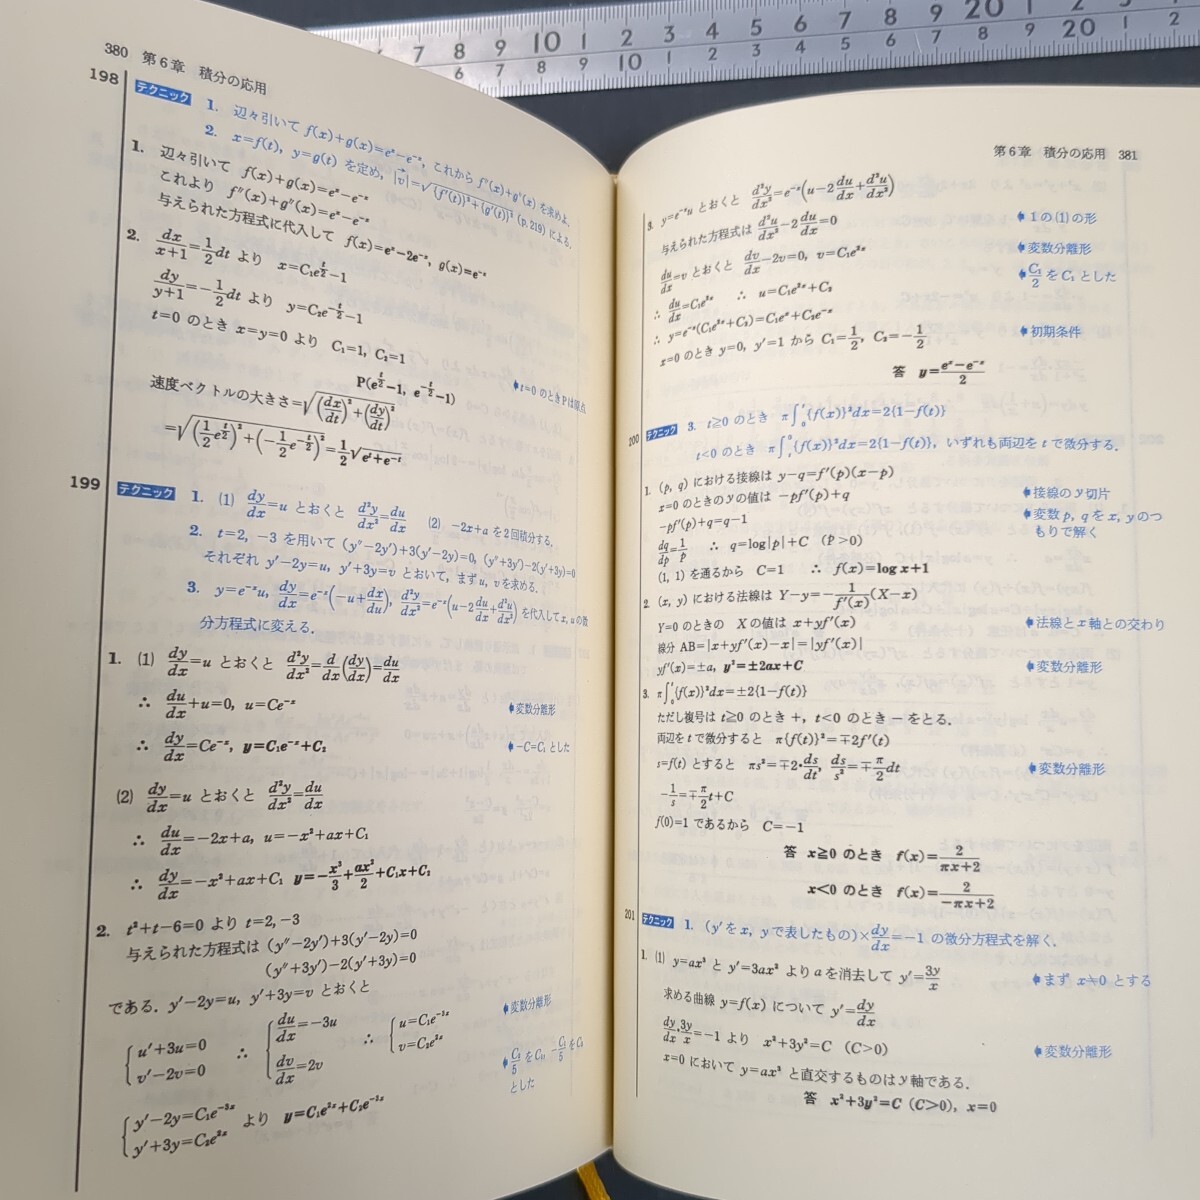 380 第6章 積分の応用
198
テクニック 1. 辺々引いて f(x)+g(x)=eˣ−e⁻ˣ, これから f″(x)+g″(x) を求めよ.
2. x=f(t), y=g(t) を定め, |v⃗|=√({f′(t)}²+{g′(t)}²) (p.219) による.
1. 辺々引いて f(x)+g(x)=eˣ−e⁻ˣ
これより f″(x)+g″(x)=eˣ−e⁻ˣ
与えられた方程式に代入して f(x)=eˣ−2e⁻ˣ, g(x)=e⁻ˣ
2. dx/(x+1)=1/2 dt より x=C₁e^(t/2)−1
dy/(y+1)=−1/2 dt より y=C₂e^(−t/2)−1
t=0 のとき x=y=0 より C₁=1, C₂=1
P(e^(t/2)−1, e^(−t/2)−1)
t=0 のとき P は原点
速度ベクトルの大きさ=√((dx/dt)²+(dy/dt)²)
=√((1/2 e^(t/2))²+(−1/2 e^(−t/2))²)=1/2 √(eᵗ+e⁻ᵗ)
199
テクニック 1. (1) dy/dx=u とおくと d²y/dx²=du/dx (2) −2x+a を2回積分する.
2. t=2, −3 を用いて (y″−2y′)+3(y′−2y)=0, (y″+3y′)−2(y′+3y)=0
それぞれ y′−2y=u, y′+3y=v とおいて, まず u, v を求める.
3. y=e⁻ˣu, dy/dx=e⁻ˣ(−u+dx/du), d²y/dx²=e⁻ˣ(u−2du/dx+d²u/dx²) を代入して x, u の微
分方程式に変える.
1. (1) dy/dx=u とおくと d²y/dx²=d/dx(dy/dx)=du/dx
∴ du/dx+u=0, u=Ce⁻ˣ
変数分離形
∴ dy/dx=Ce⁻ˣ, y=C₁e⁻ˣ+C₂
−C=C₁ とした
(2) dy/dx=u とおくと d²y/dx²=du/dx
∴ du/dx=−2x+a, u=−x²+ax+C₁
∴ dy/dx=−x²+ax+C₁ y=−x³/3+ax²/2+C₁x+C₂
2. t²+t−6=0 より t=2, −3
与えられた方程式は (y″−2y′)+3(y′−2y)=0
(y″+3y′)−2(y′+3y)=0
である. y′−2y=u, y′+3y=v とおくと
変数分離形
u′+3u=0 ∴ du/dx=−3u ∴ u=C₁e⁻³ˣ
v′−2v=0 dv/dx=2v v=C₂e²ˣ
とした
y′−2y=C₁e⁻³ˣ
より y=C₁e²ˣ+C₂e⁻³ˣ
y′+3y=C₂e²ˣ
第6章 積分の応用 381
3. y=e⁻ˣu とおくと d²y/dx²=e⁻ˣ(u−2du/dx+d²u/dx²)
与えられた方程式は d²u/dx²−2du/dx=0
1の(1)の形
du/dx=v とおくと dv/dx−2v=0, v=C₁e²ˣ
変数分離形
∴ du/dx=C₁e²ˣ ∴ u=C₁e²ˣ+C₂
C₁/2 を C₁ とした
∴ y=e⁻ˣ(C₁e²ˣ+C₂)=C₁eˣ+C₂e⁻ˣ
x=0 のとき y=0, y′=1 から C₁=1/2, C₂=−1/2
初期条件
答 y=(eˣ−e⁻ˣ)/2
200
テクニック 3. t≧0 のとき π∫₀ᵗ{f(x)}²dx=2{1−f(t)}
t<0 のとき π∫ₜ⁰{f(x)}²dx=2{1−f(t)}, いずれも両辺を t で微分する.
1. (p, q) における接線は y−q=f′(p)(x−p)
x=0 のときの y の値は −pf′(p)+q
接線の y 切片
−pf′(p)+q=q−1
変数 p, q を x, y のつ
もりで解く
dq/dp=1/p ∴ q=log|p|+C (p>0)
(1, 1) を通るから C=1 ∴ f(x)=log x+1
2. (x, y) における法線は Y−y=−1/f′(x)(X−x)
Y=0 のときの X の値は x+yf′(x)
法線と x 軸との交わり
線分 AB=|x+yf′(x)−x|=|yf′(x)|
yf′(x)=±a, y²=±2ax+C
変数分離形
3. π∫₀ᵗ{f(x)}²dx=±2{1−f(t)}
ただし複号は t≧0 のとき +, t<0 のとき − をとる.
両辺を t で微分すると π{f(t)}²=∓2f′(t)
s=f(t) とすると πs²=∓2·ds/dt, ds/s²=∓π/2 dt
変数分離形
−1/s=∓π/2 t+C
f(0)=1 であるから C=−1
答 x≧0 のとき f(x)=2/(πx+2)
x<0 のとき f(x)=2/(−πx+2)
201
テクニック 1. (y′ を x, y で表したもの)×dy/dx=−1 の微分方程式を解く.
1. (1) y=ax³ と y′=3ax² より a を消去して y′=3y/x
まず x≠0 とする
求める曲線 y=f(x) について y′=dy/dx
dy/dx·3y/x=−1 より x²+3y²=C (C>0)
変数分離形
x=0 において y=ax³ と直交するものは y 軸である.
答 x²+3y²=C (C>0), x=0